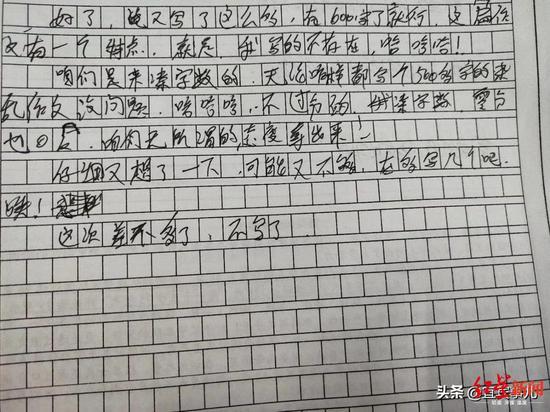 好了，也又写了这么多，有600字了就行，这篇作
文有一个特点，就是，我写的不存在，哈哈哈！
咱们是来凑字数的，无论咱样都写个500多字的来
作文没问题，哈哈哈，不过分的，凑字数，零分
也可，咱们无所谓的态度拿出来！
仔细又想了一下，可能又不够，在多写几个吧，
哄！
这次差不多了，不写了．
红星新闻
头条 @直笔